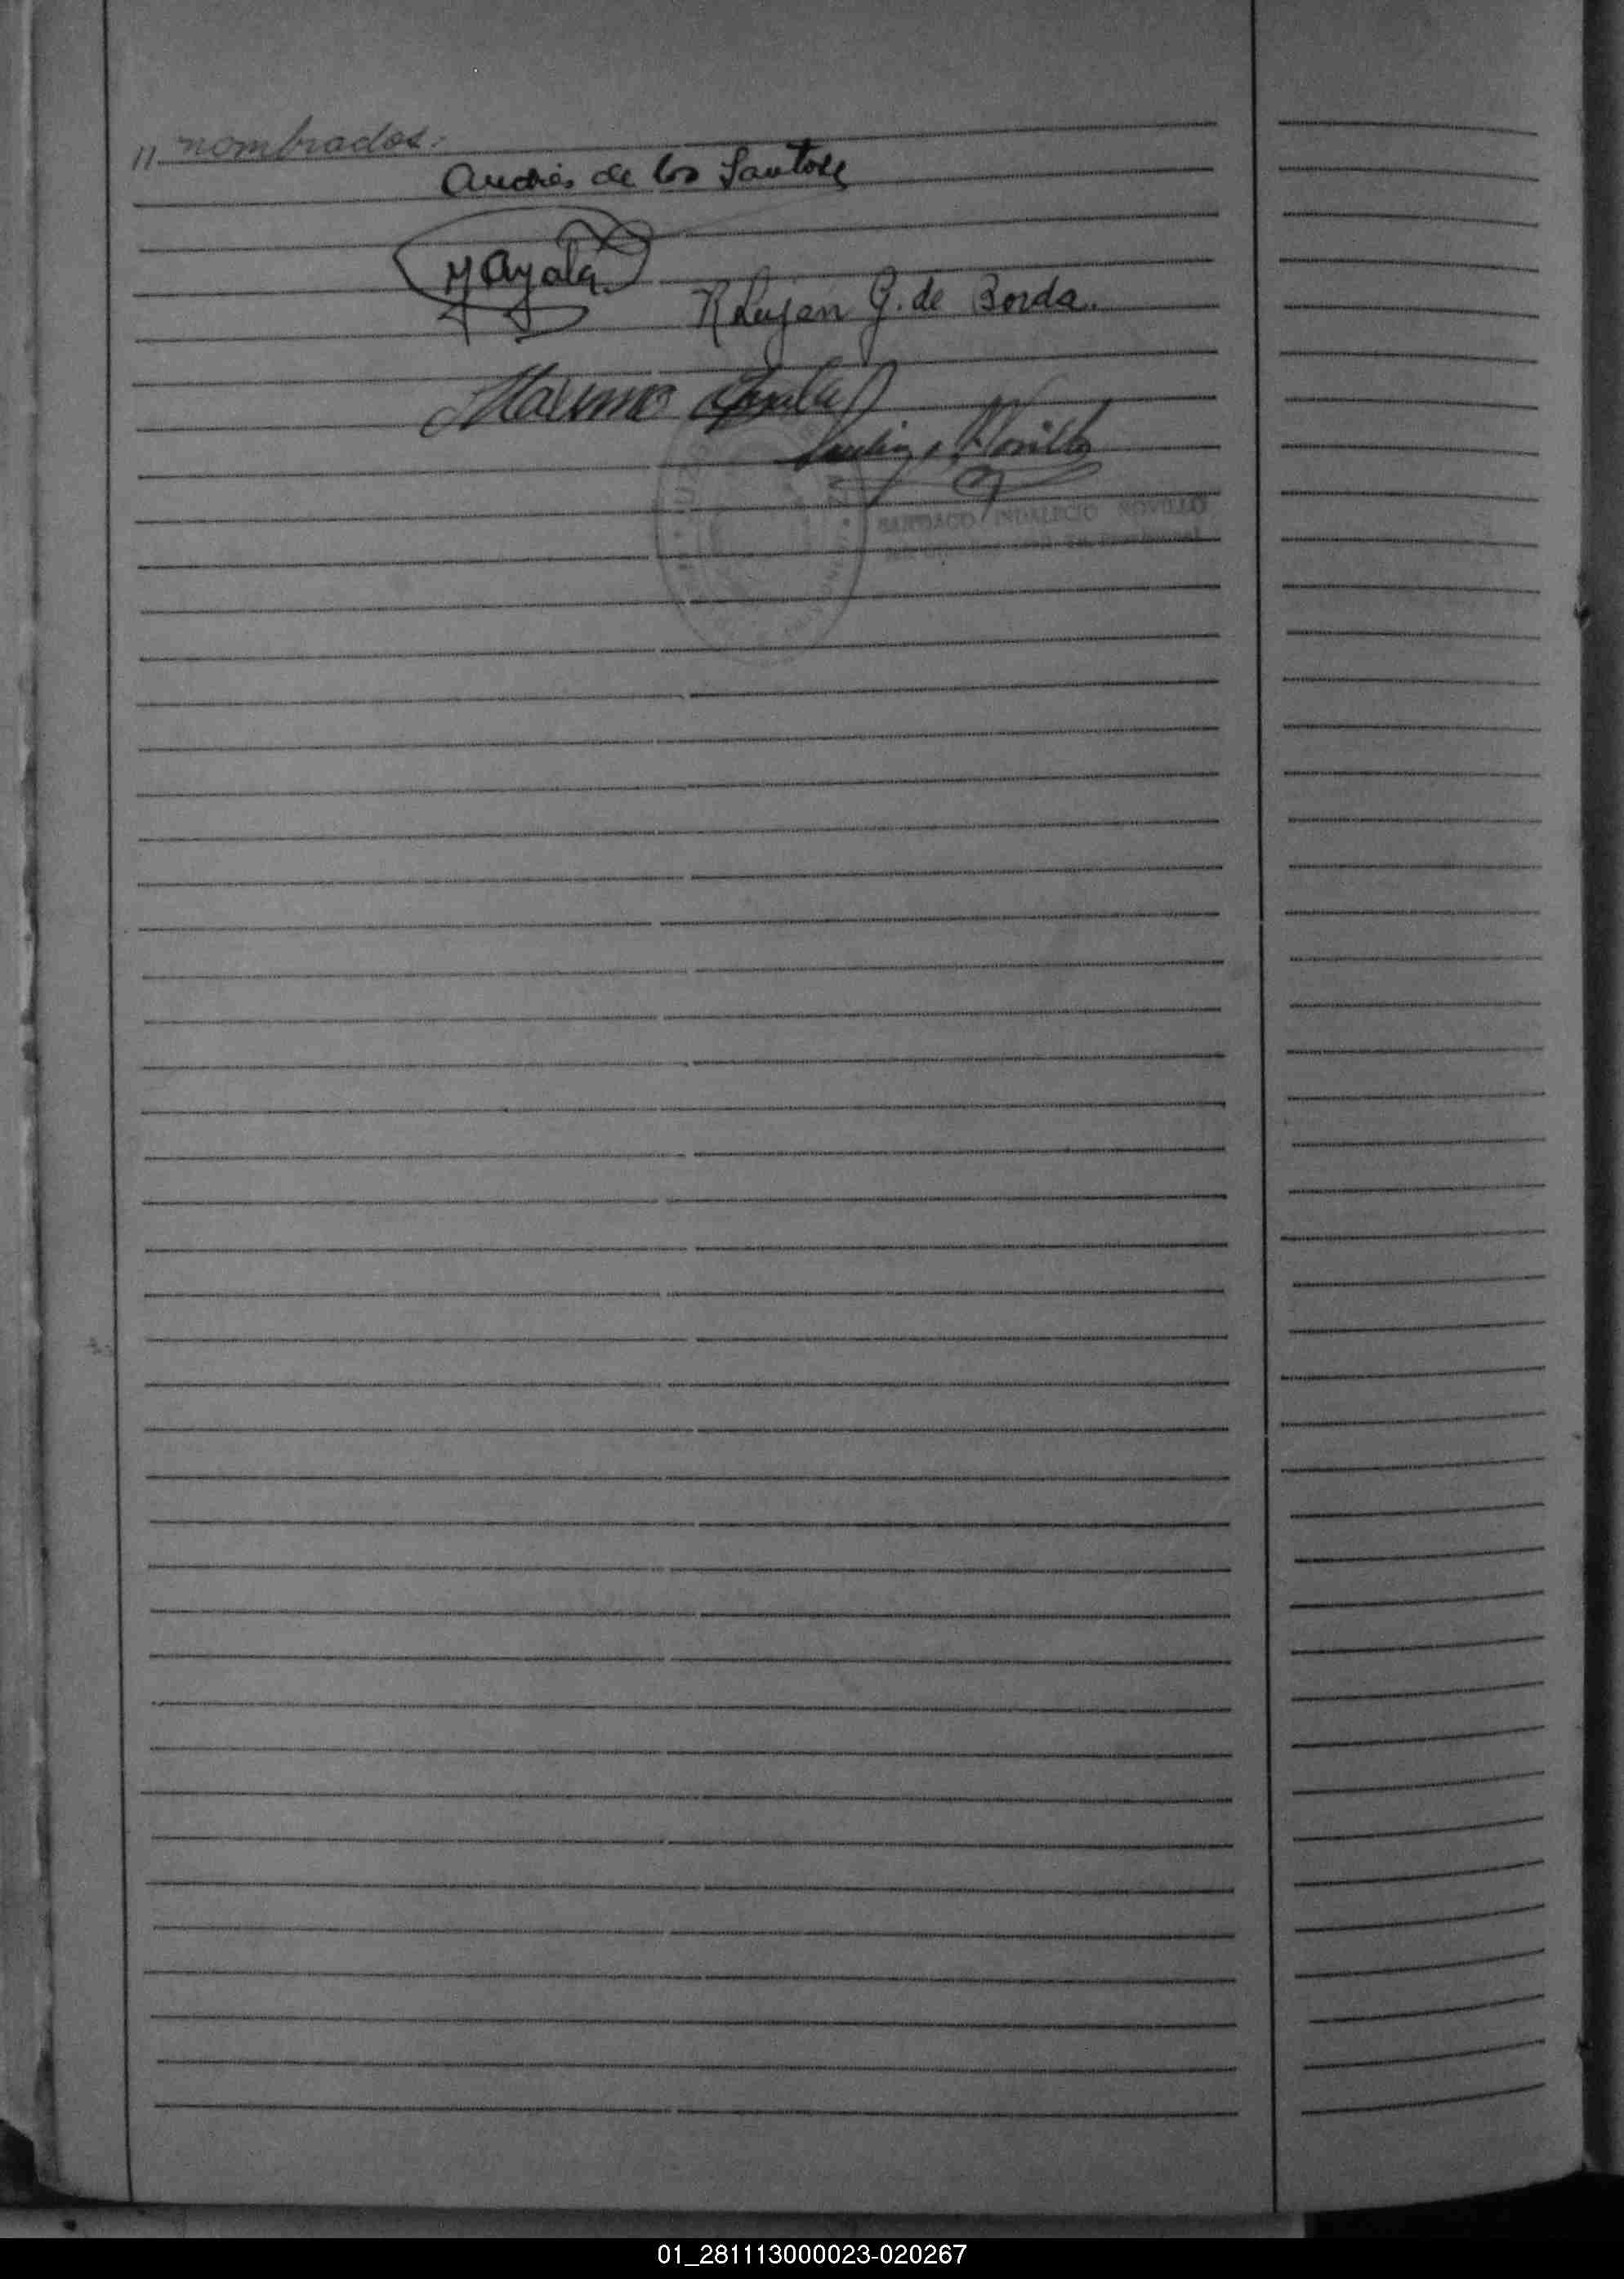 " nombrados.
Andrés de los Santos
M Ayala
R Lujan G. de Borda.
Maximo Ayala
Santiago Novillo
SANTIAGO INDALECIO NOVILLO
01_281113000023-020267